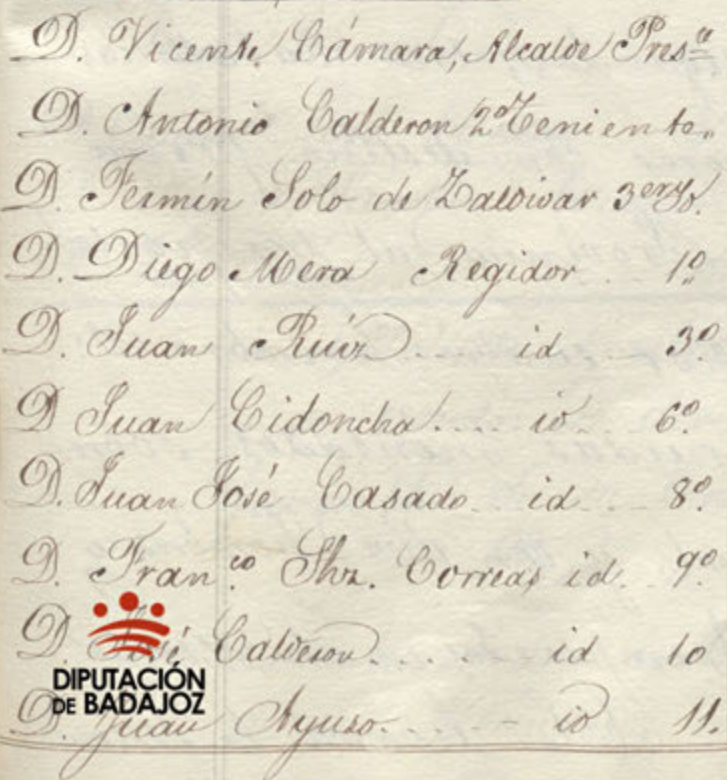 D. Vicente Cámara, Alcalde Pres.te
D. Antonio Calderon 2º Teniente.
D. Fermín Solo de Zaldivar 3er id.
D. Diego Mera Regidor .. 1º
D. Juan Ruiz .... id ... 3º
D Juan Cidoncha .... id ... 6º
D. Juan José Casado .. id ... 8º
D. Fran.co Shz. Correas id. 9º
D. José Calderon .... id 10
D. Juan Ayuso .... - id 11.
DIPUTACIÓN
DE BADAJOZ